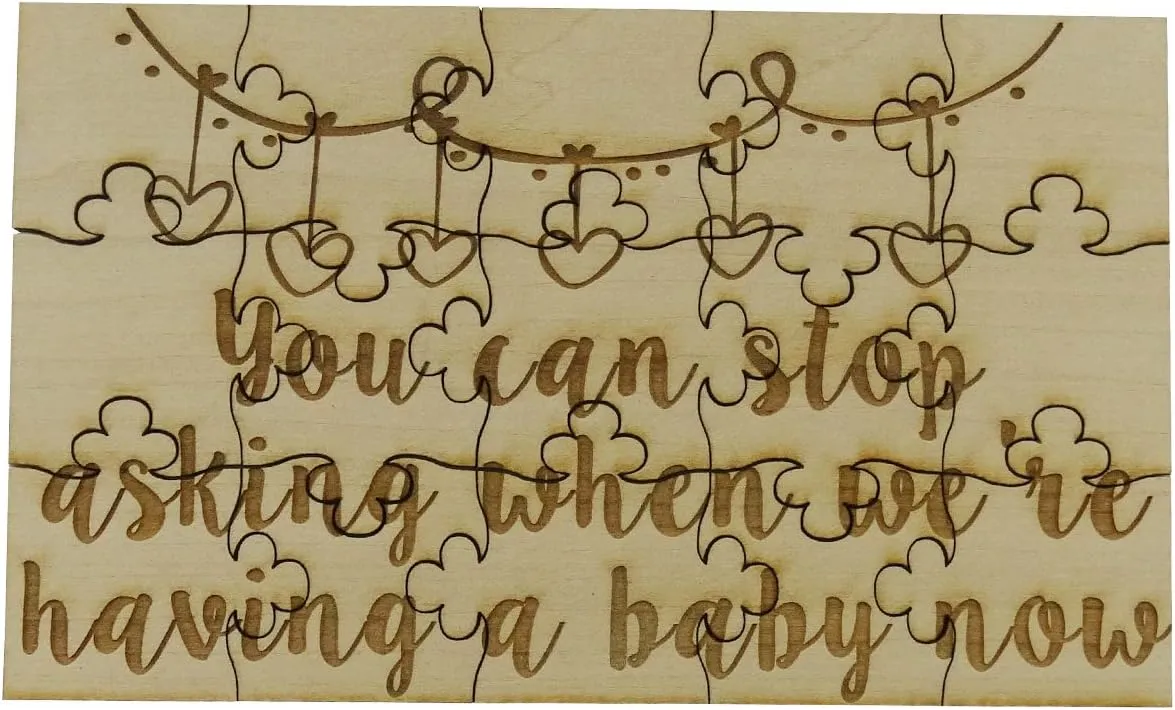 You can stop
asking when we're
having a baby now